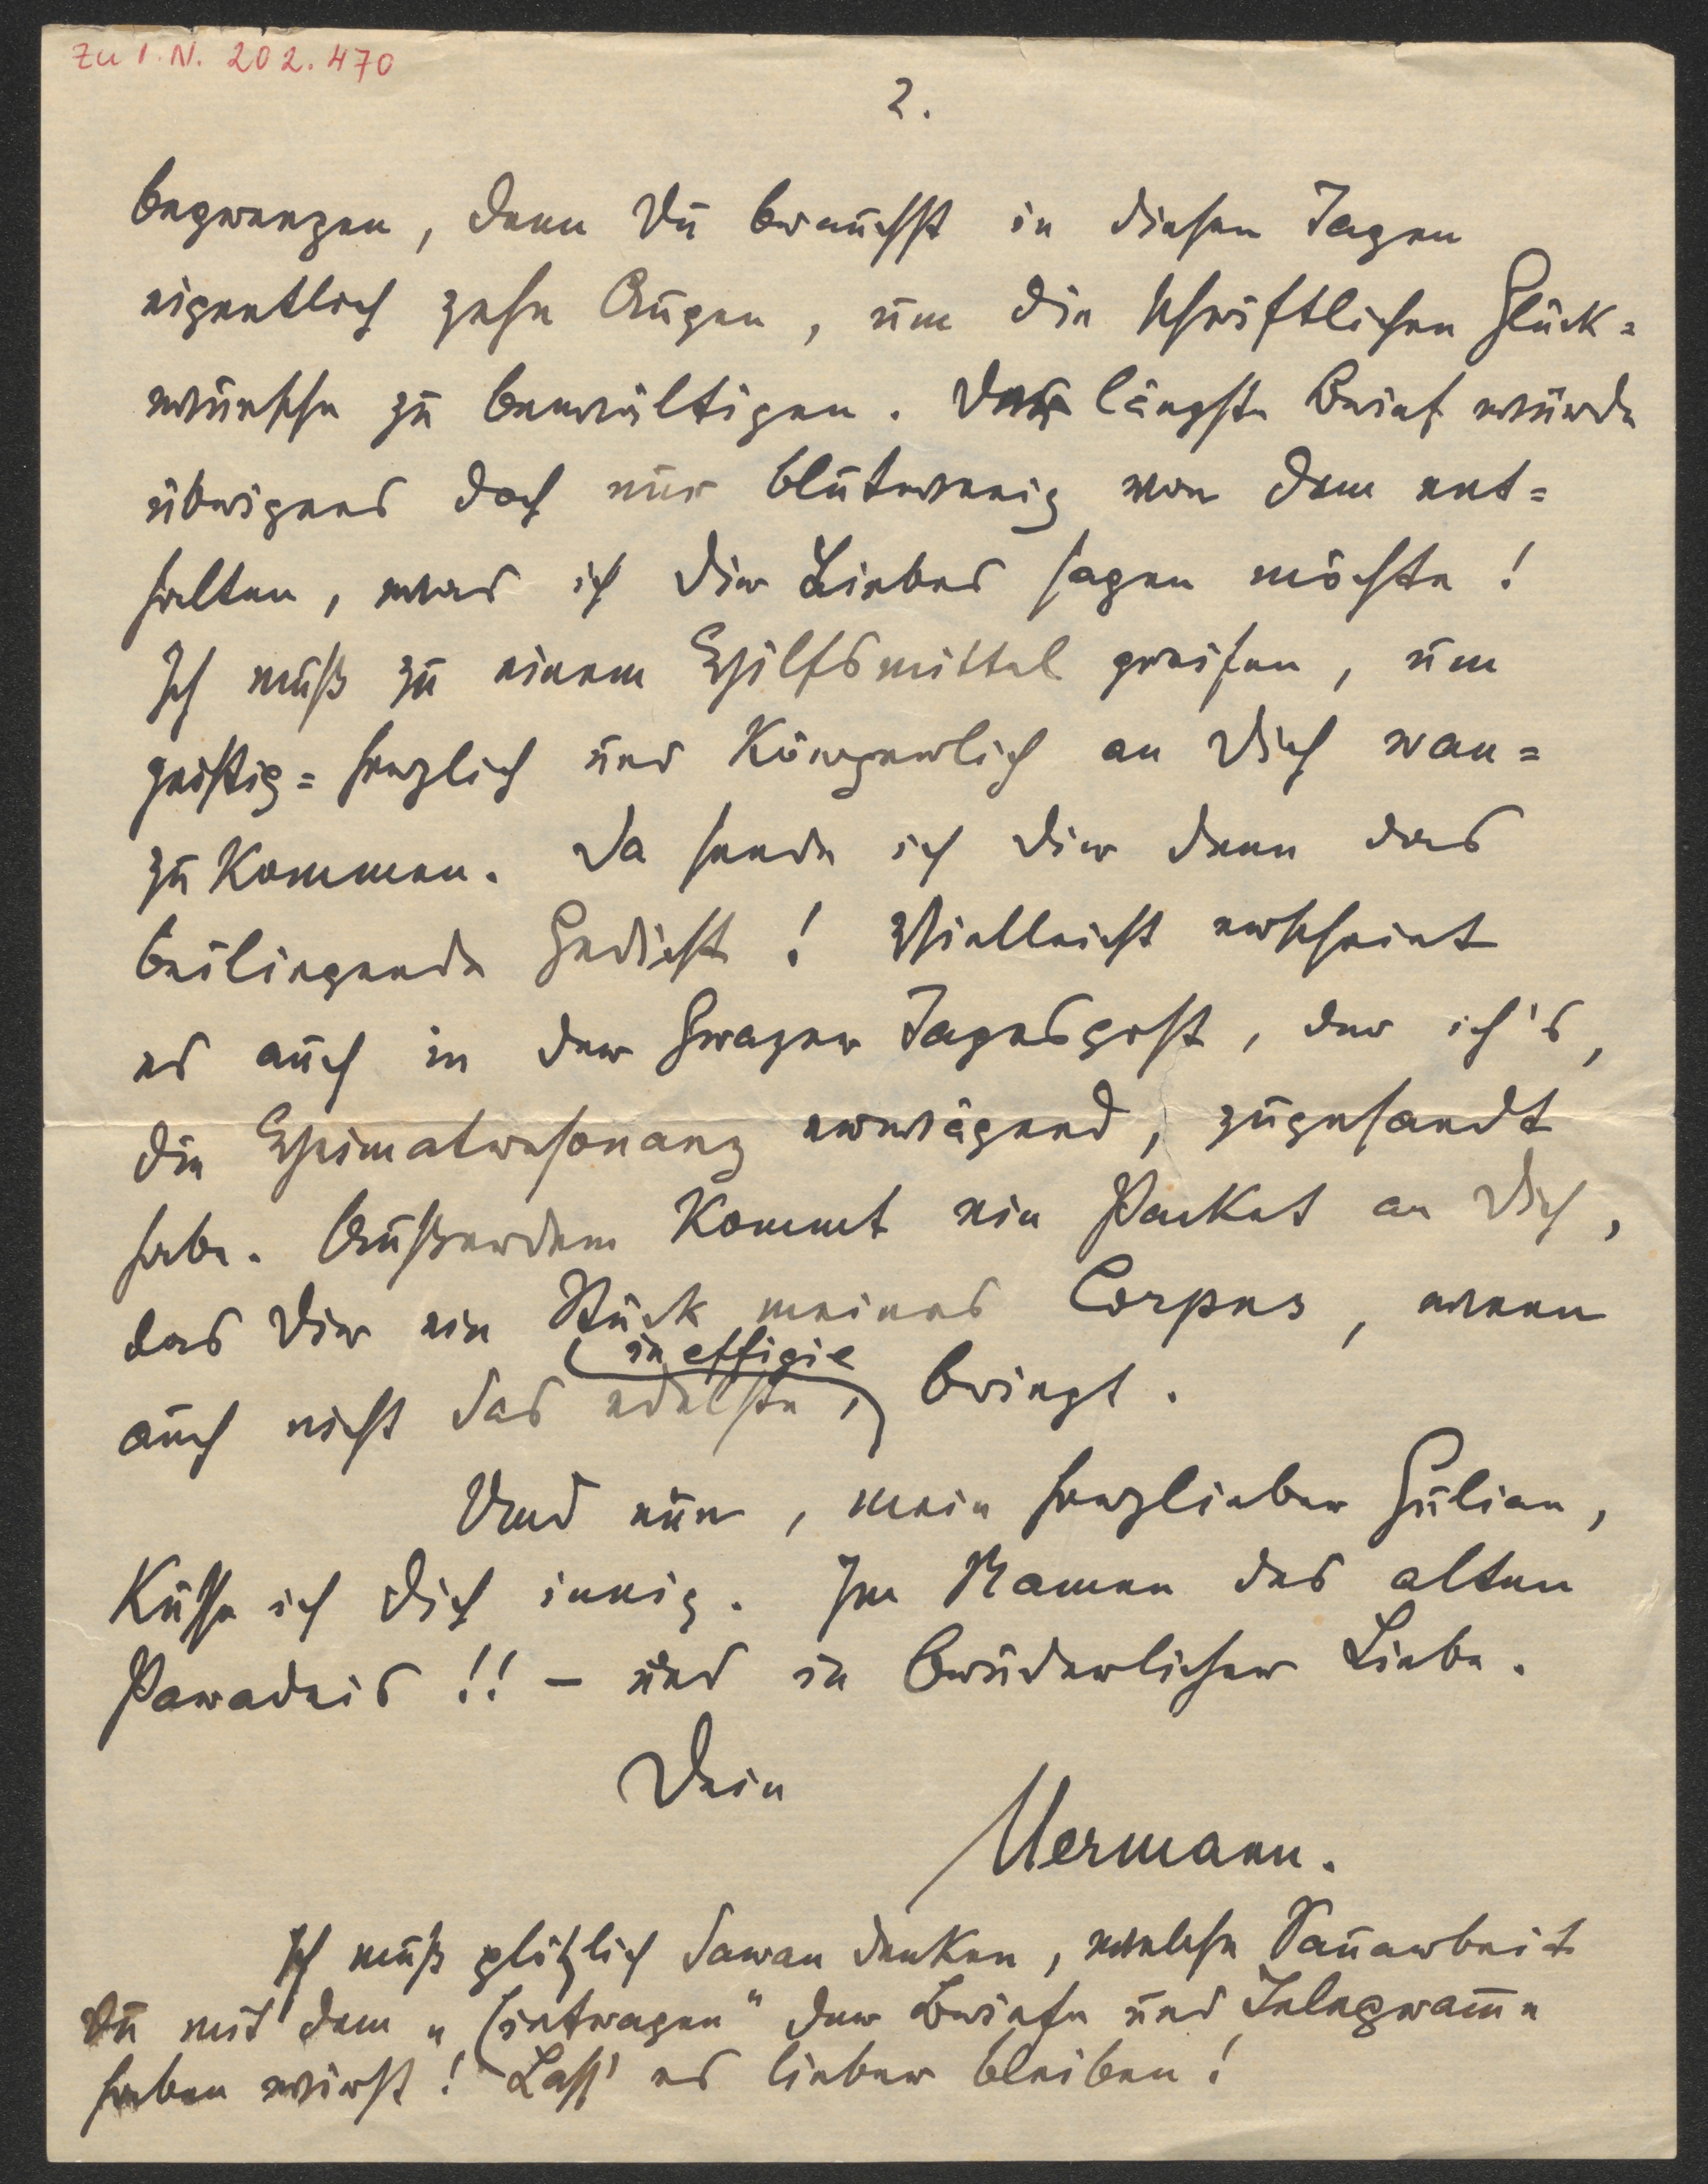 Zu I.N. 202.470
2.
begrenzen, denn Du brauchst in diesen Tagen
eigentlich zehn Augen, um die schriftlichen Glück=
wünsche zu bewältigen. Der längste Brief würde
übrigens doch nur blutwenig von dem ent=
halten, was ich Dir Liebes sagen möchte!
Ich muß zu einem Hilfsmittel greifen, um
geistig=herzlich und körperlich an Dich ran=
zukommen. Da sende ich Dir denn das
beiliegende Gedicht! Vielleicht erscheint
es auch in der Grazer Tagespost, der ich's,
die Heimatresonanz erwägend, zugesandt
habe. Außerdem kommt ein Packet an Dich,
das Dir ein Stück meines Corpus, wenn
auch nicht das edelste, (in effigie) bringt.
Und nun, mein herzlieber Julian,
küsse ich Dich innig. Im Namen des alten
Paradeis!! – und in brüderlicher Liebe.
Dein
Hermann.
Ich muß plötzlich daran denken, welche Sauarbeit
Du mit dem „Eintragen" der Briefe und Telegram̅e
haben wirst! Lass' es lieber bleiben!